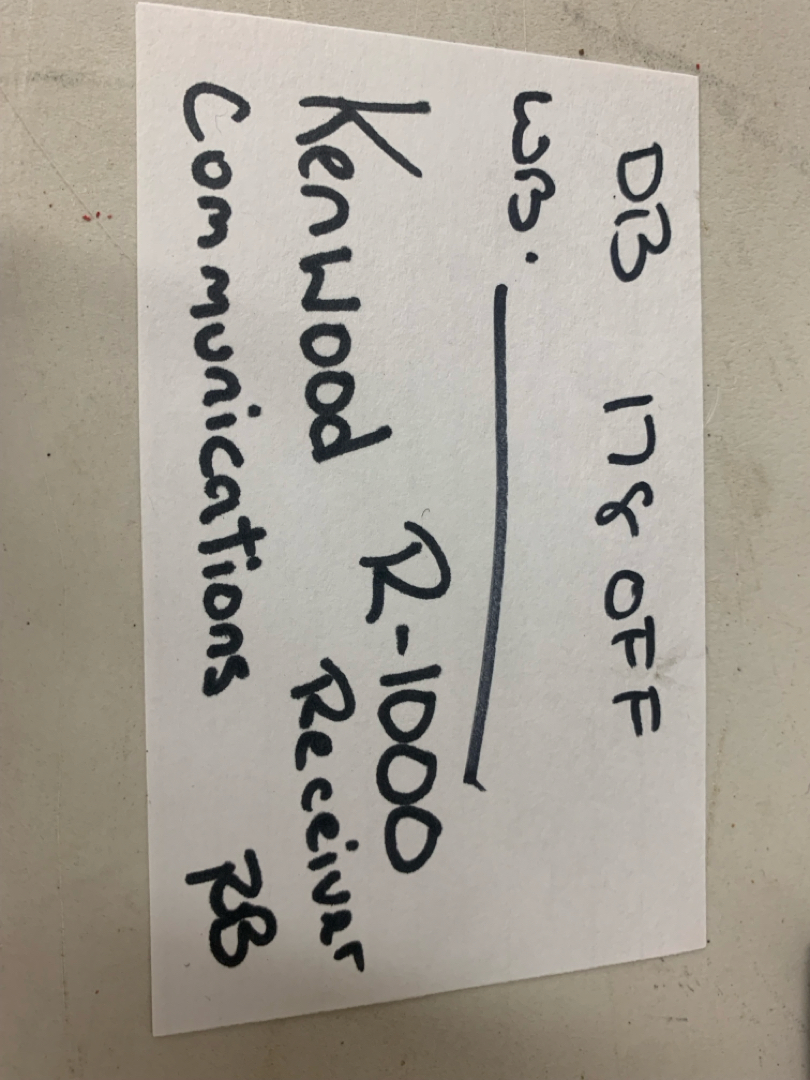 DB 178 OFF
WB.
R-1000
Kenwood Receivar
Communications RB